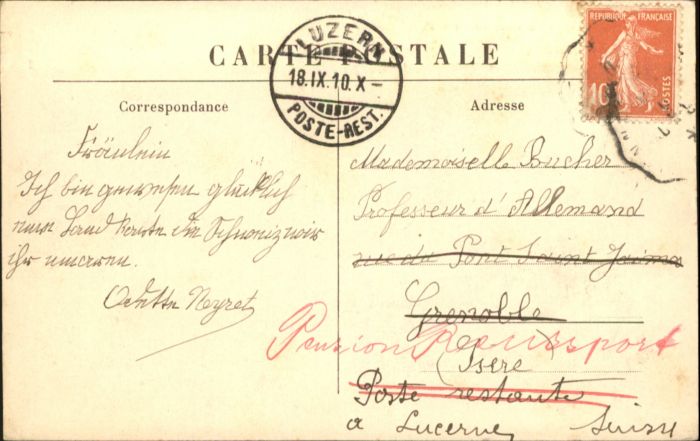 CARTE POSTALE
Correspondance
Adresse
LUZERN
18.IX.10.X-
POSTE-REST.
REPUBLIQUE FRANÇAISE
10
POSTES
Fräulein
Ich bin gewesen glücklich
Odette Neyret
Mademoiselle Bucher
Professeur d'Allemand
rue du Pont Saint Jaime
Grenoble
Isère
Pension
Poste restante
a Lucerne Suisse